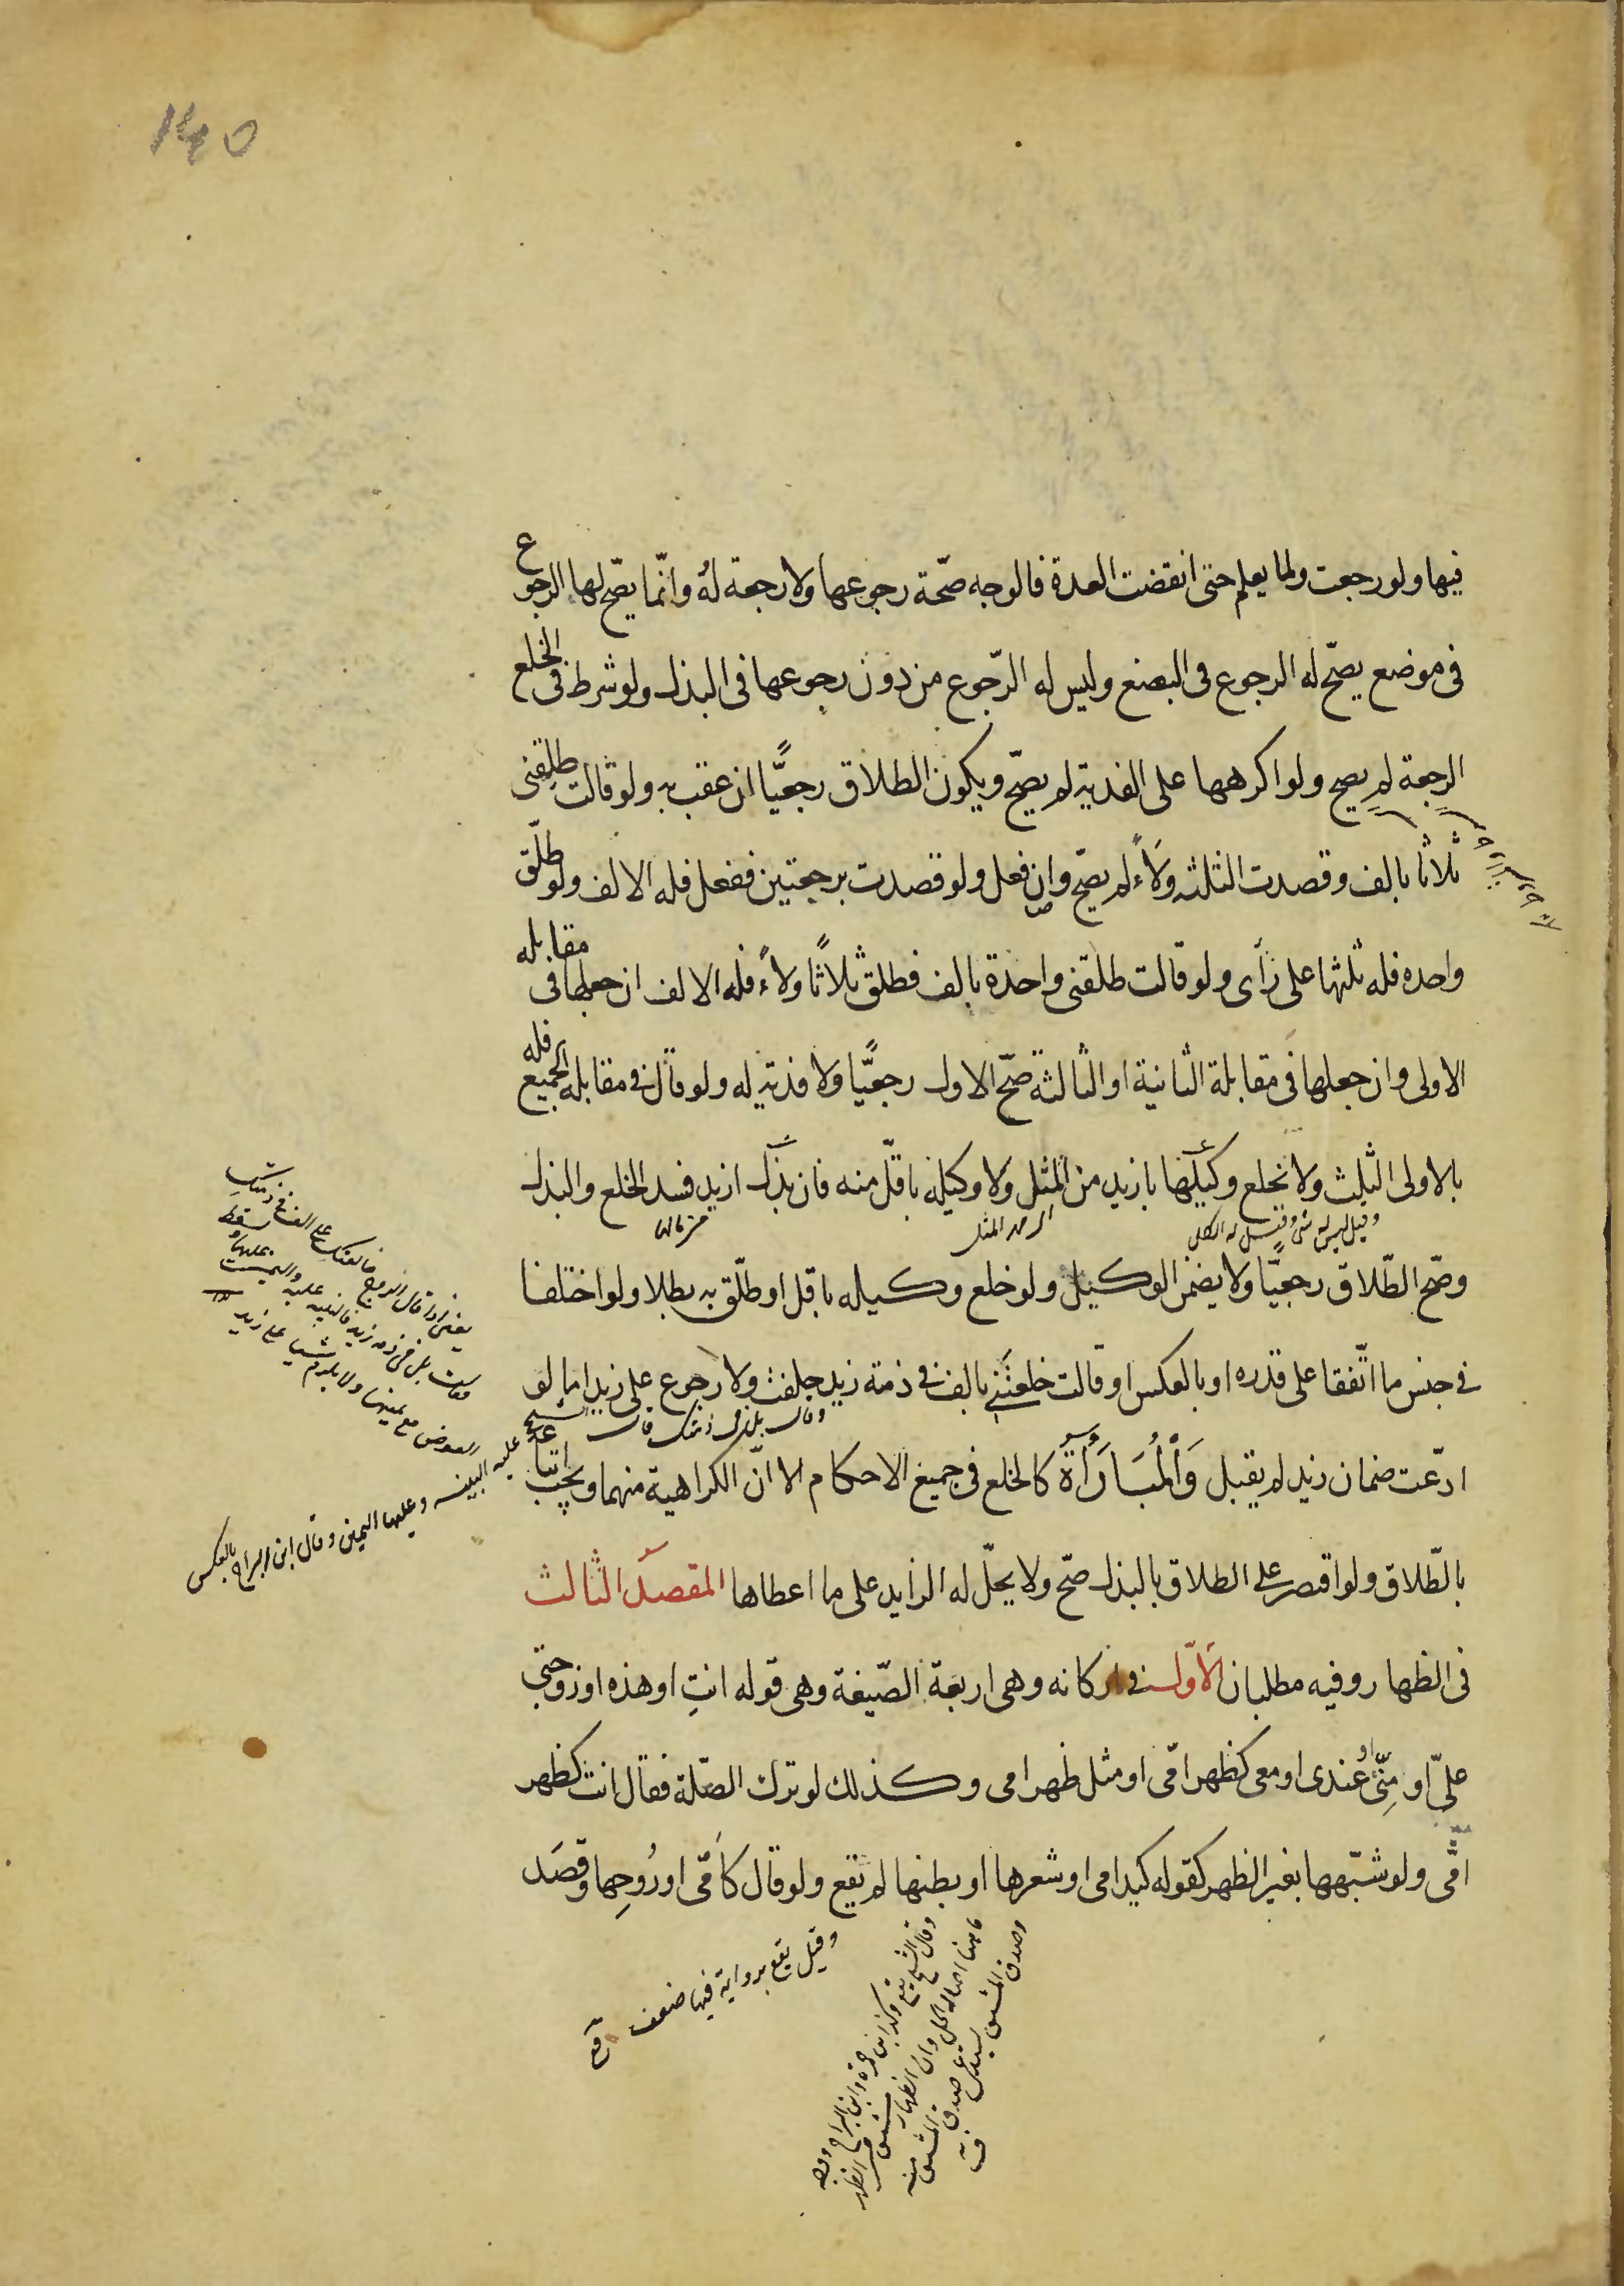 140
فيها ولو رجعت ولما يعلم حتى انقضت العدة فالوجه صحّة رجوعها ولا رجعة له وانّما يصّح لها الرجوع
فى موضع يصّح له الرجوع فى البضع وليس له الرّجوع من دون رجوعها فى البذل ولو شرط فى الخلع
الرجعة لم يصح ولو اكرهها على الفدية لم يصّح ويكون الطلاق رجعيًّا ان عقب به ولو قالت طلقنى
ثلاثا بالف وقصدت الثلثه ولاءً لم يصّح وان فعل ولو قصدت برجعتين ففعل فله الالف ولو طلّق
واحده فله ثلثها على رأى ولو قالت طلقنى واحدة بالف فطلق ثلاثًا ولاءً فله الالف ان جعلها فى مقابله
الاولى وان جعلها فى مقابلة الثانية او الثالثة صّح الاول رجعيًّا ولا فدية له ولو قال فى مقابله الجميع فله
بالاولى الثلث ولا تخلع وكيلها بازيد من المثل ولا وكيله باقلّ منه فان بذل ازيد فسد الخلع والبذل
وقيل ليس له شى وقيل له الكل
مهر المثل
من مالها
وصّح الطّلاق رجعيًّا ولا يضمن الوكيل ولو خلع وكيله باقل او طلّق به بطلا ولو اختلفا
فى جنس ما اتّفقا على قدره او بالعكس او قالت خلعتنى بالف فى ذمة زيد حلفت ولا رجوع على زيد اما لو
ادّعت ضمان زيد لم يقبل وَالْمُبَارَأَة كالخلع فى جميع الاحكام الا انّ الكراهية منهما ويجب اتباعه
بالطّلاق ولو اقتصر على الطلاق بالبذل صّح ولا يحلّ له الزايد على ما اعطاها المقصد الثالث
فى الظهار وفيه مطلبان الاوّل فى اركانه وهى اربعة الصّيغة وهى قوله انتِ او هذه او زوجتى
علىّ او مِنّى او عندى او معى كظهر امّى او مثل ظهر امى وكذلك لو ترك الصّلة فقال انت كظهر
امّى ولو شبّهها بغير الظهر كقوله كيد امى او شعرها او بطنها لم يقع ولو قال كامّى او رُوحِها وقصَد
عليه البينه وعليها اليمين وقال ابن البراج بالعكس
وقيل يقع برواية فيها ضعف